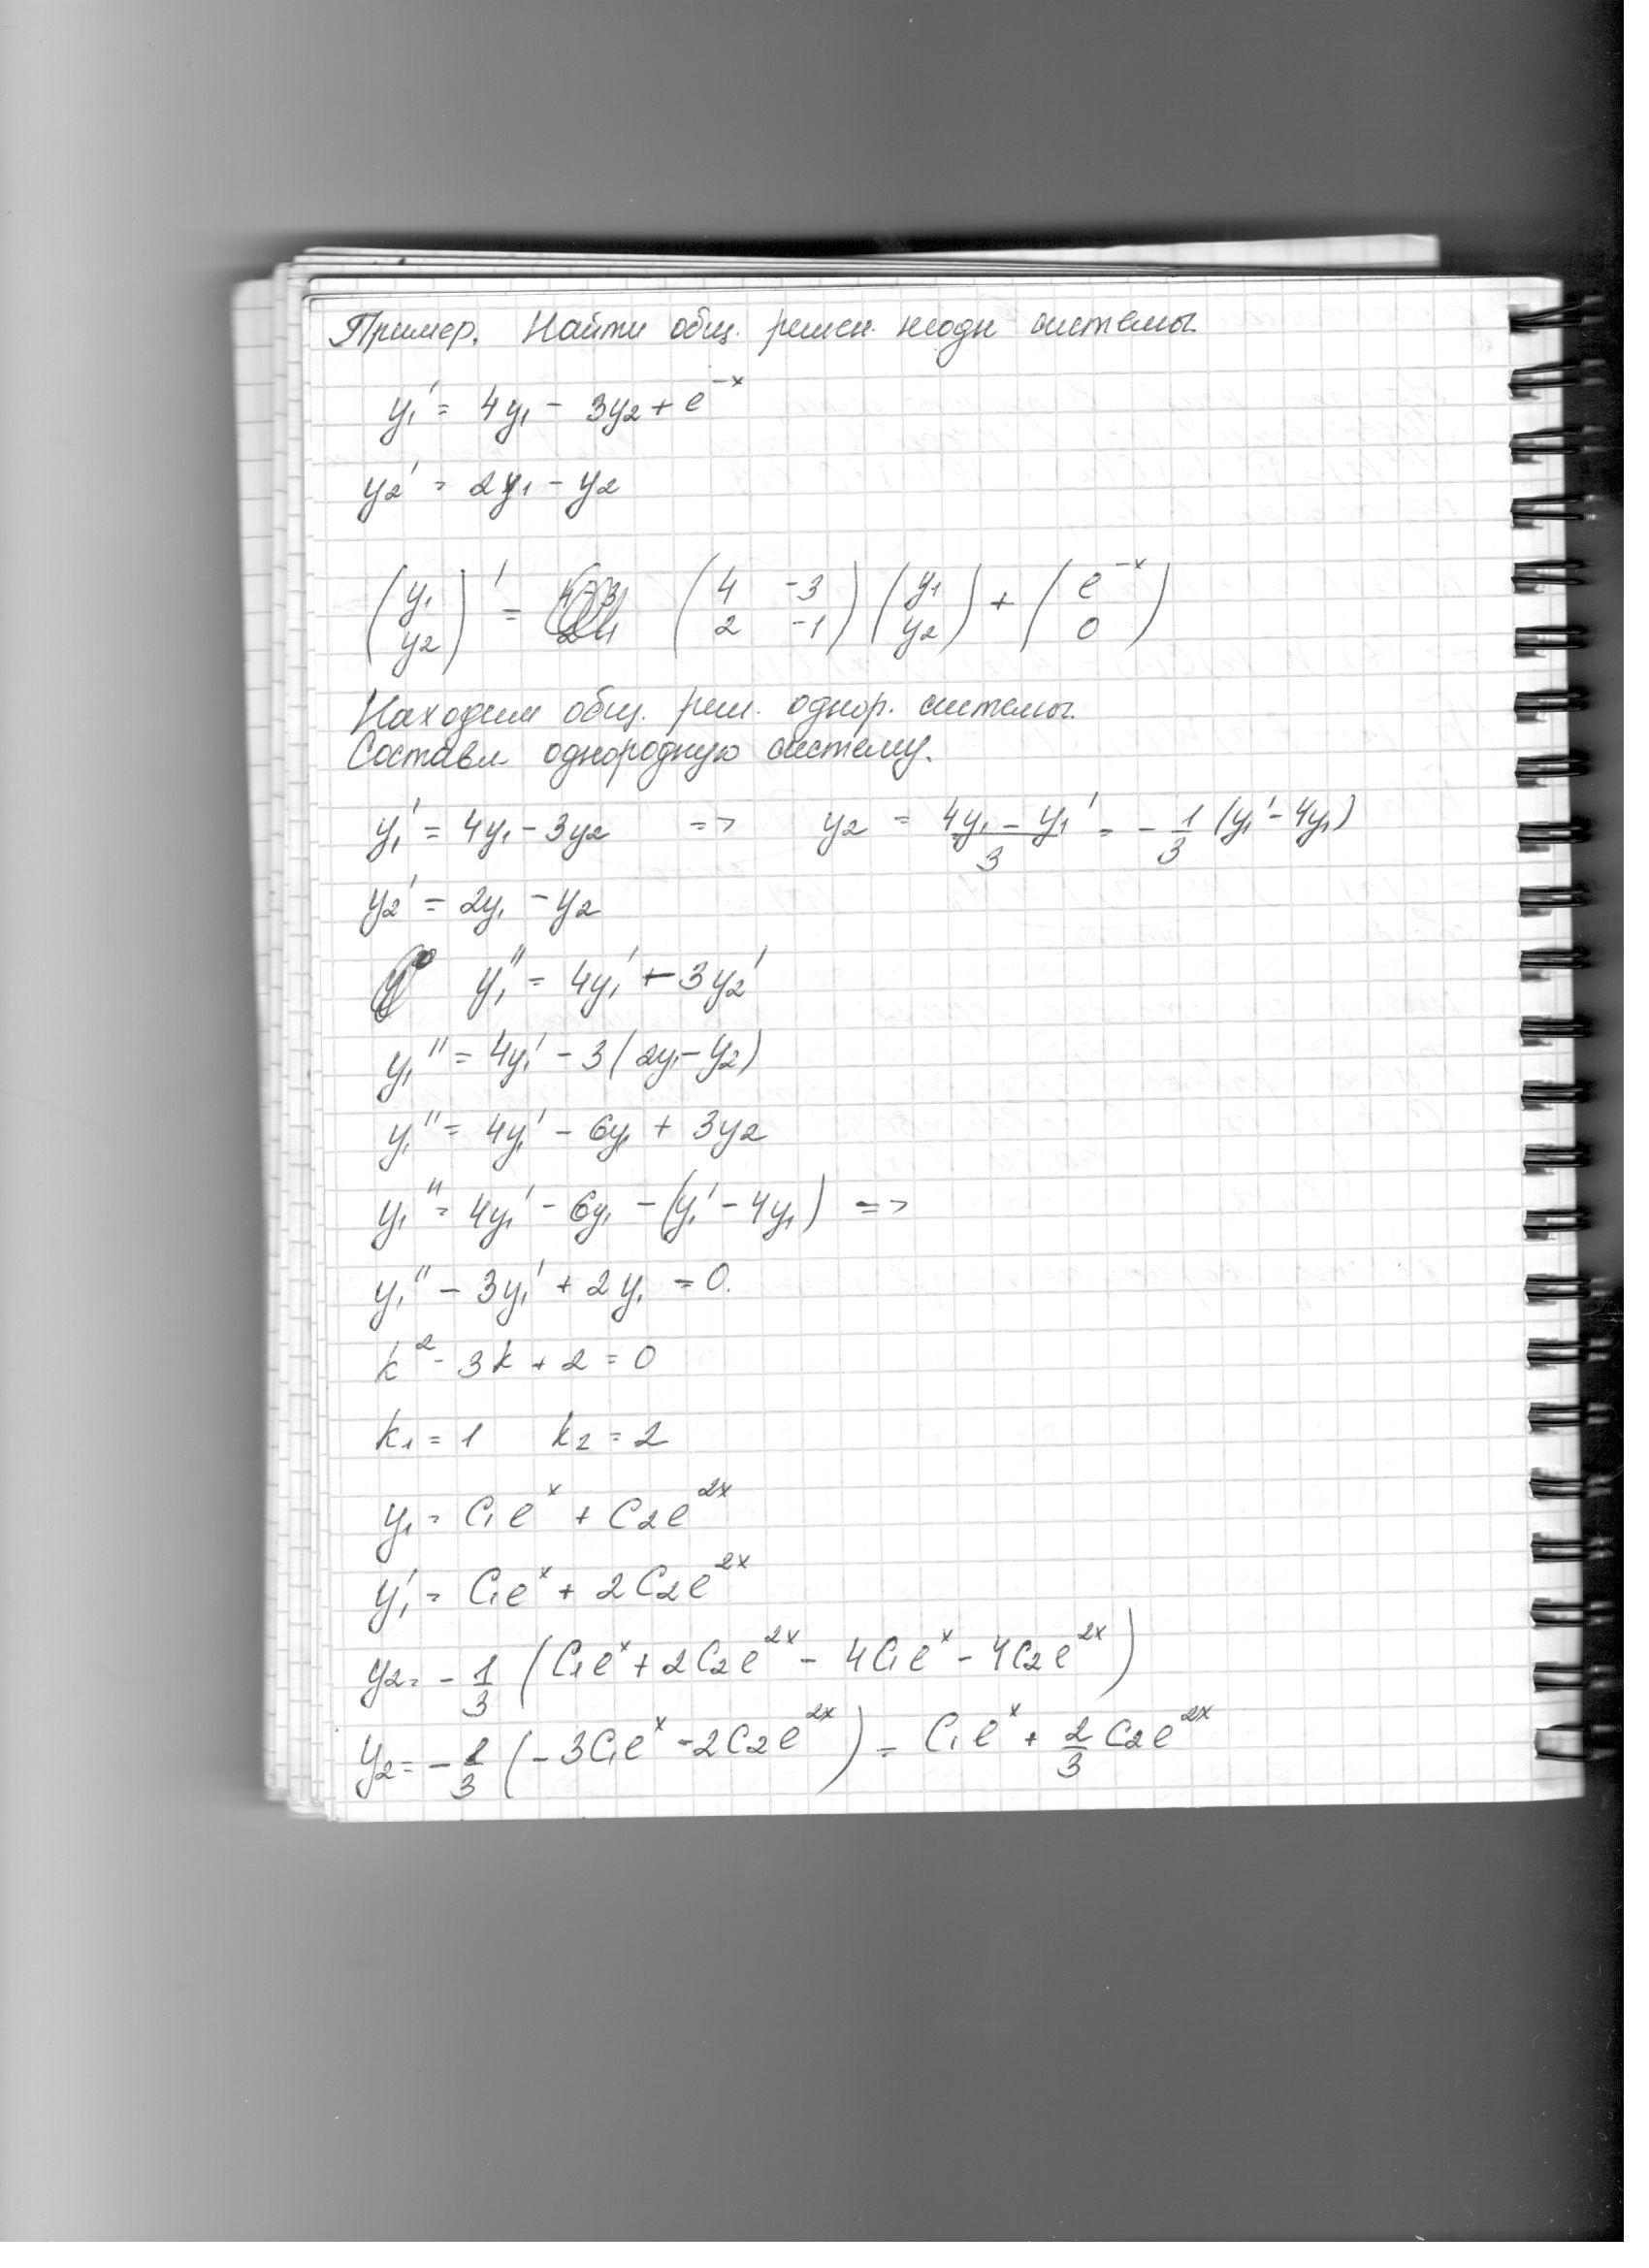 Пример. Найти общ. решен. неодн системы.
y₁' = 4y₁ - 3y₂ + e⁻ˣ
y₂' = 2y₁ - y₂
(y₁ y₂)' = (4 -3 2 -1) (y₁ y₂) + (e⁻ˣ 0)
Находим общ. реш. однор. системы.
Составл однородную систему.
y₁' = 4y₁ - 3y₂ => y₂ = (4y₁ - y₁')/3 = - 1/3 (y₁' - 4y₁)
y₂' = 2y₁ - y₂
y₁'' = 4y₁' - 3y₂'
y₁'' = 4y₁' - 3(2y₁ - y₂)
y₁'' = 4y₁' - 6y₁ + 3y₂
y₁'' = 4y₁' - 6y₁ - (y₁' - 4y₁) =>
y₁'' - 3y₁' + 2y₁ = 0.
k² - 3k + 2 = 0
k₁ = 1 k₂ = 2
y₁ = C₁eˣ + C₂e²ˣ
y₁' = C₁eˣ + 2C₂e²ˣ
y₂ = - 1/3 (C₁eˣ + 2C₂e²ˣ - 4C₁eˣ - 4C₂e²ˣ)
y₂ = - 1/3 (-3C₁eˣ - 2C₂e²ˣ) = C₁eˣ + 2/3 C₂e²ˣ